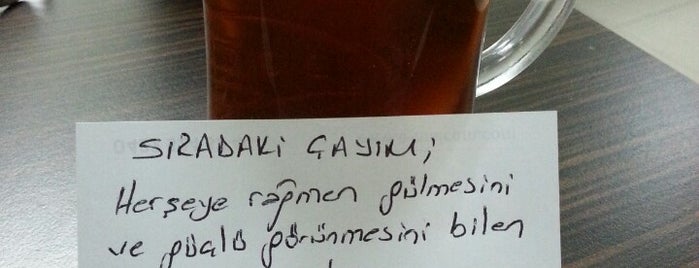 SIRADAKİ ÇAYIM;
Herşeye rağmen gülmesini
ve güçlü görünmesini bilen